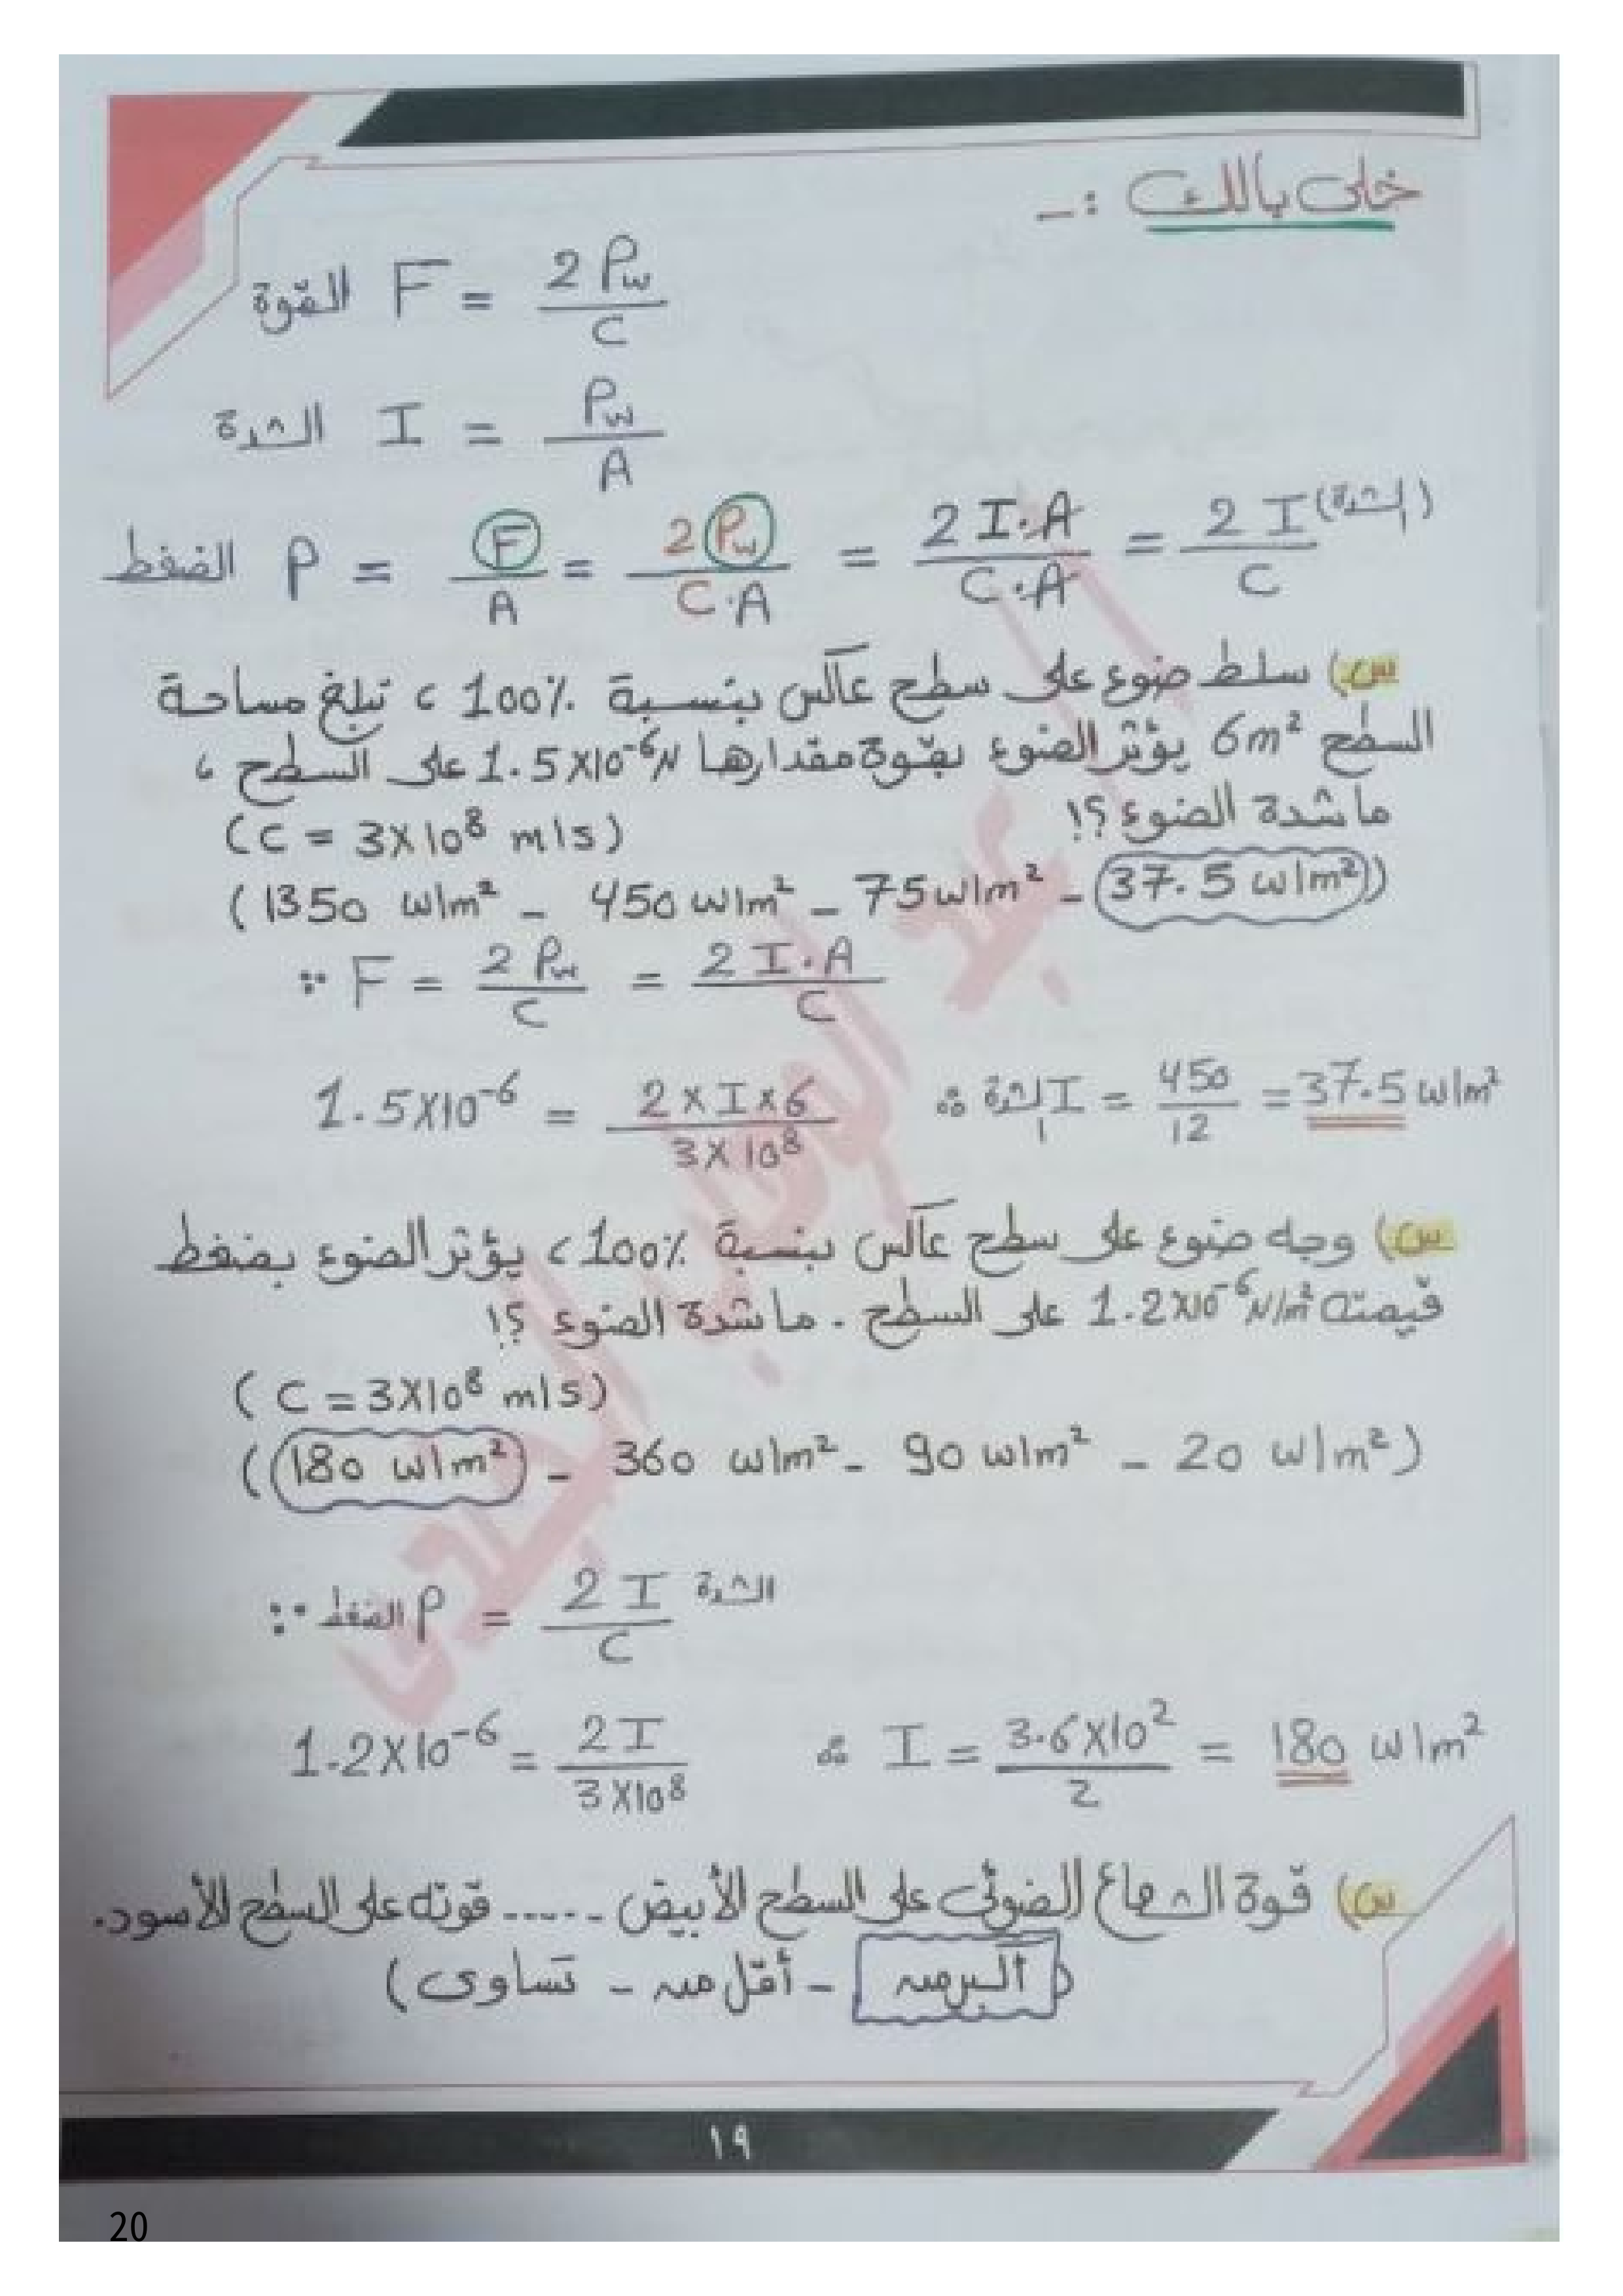 خلى بالك :-
القوة F = 2 Pw / C
الشدة I = Pw / A
الضغط P = F / A = 2 Pw / C·A = 2 I·A / C·A = 2 I (الشدة) / C
س) سلط ضوء على سطح عاكس بنسبة 100% ، تبلغ مساحة
السطح 6m² يؤثر الضوء بقوة مقدارها 1.5×10⁻⁶N على السطح ،
ما شدة الضوء ؟!
(C = 3×10⁸ m/s)
(1350 w/m² - 450 w/m² - 75 w/m² - 37.5 w/m²)
∵ F = 2 Pw / C = 2 I·A / C
1.5×10⁻⁶ = 2 × I × 6 / 3×10⁸ ∴ الشدة I = 450 / 12 = 37.5 w/m²
س) وجه ضوء على سطح عاكس بنسبة 100% ، يؤثر الضوء بضغط
قيمته 1.2×10⁻⁶ N/m² على السطح . ما شدة الضوء ؟!
(C = 3×10⁸ m/s)
(180 w/m² - 360 w/m² - 90 w/m² - 20 w/m²)
∵ الضغط P = 2 I الشدة / C
1.2×10⁻⁶ = 2 I / 3×10⁸ ∴ I = 3.6×10² / 2 = 180 w/m²
س) قوة الشعاع الضوئى على السطح الأبيض ----- قوته على السطح الأسود.
(أكبر من - أقل من - تساوى)
١٩
20